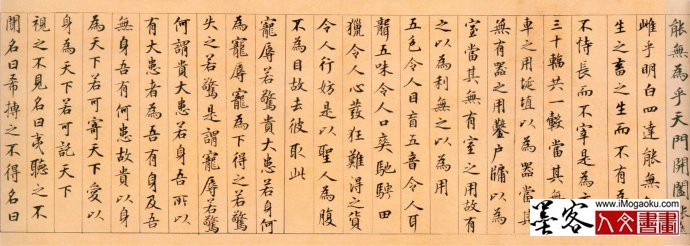 能無為乎天門開闔
雌乎明白四達能無
生之畜之生而不有
不恃長而不宰是為
三十輻共一轂當其無
車之用埏埴以為器當其
無有器之用鑿戶牖以為
室當其無有室之用故有
之以為利無之以為用
五色令人目盲五音令人耳
聾五味令人口爽馳騁田
獵令人心發狂難得之貨
令人行妨是以聖人為腹
不為目故去彼取此
寵辱若驚貴大患若身何
為寵辱寵為下得之若驚
失之若驚是謂寵辱若驚
何謂貴大患若身吾所以
有大患者為吾有身及吾
無身吾有何患故貴以身
為天下若可寄天下愛以
身為天下若可託天下
視之不見名曰夷聽之不
聞名曰希搏之不得名曰
墨客
www.iMogaoku.com
人文書畫